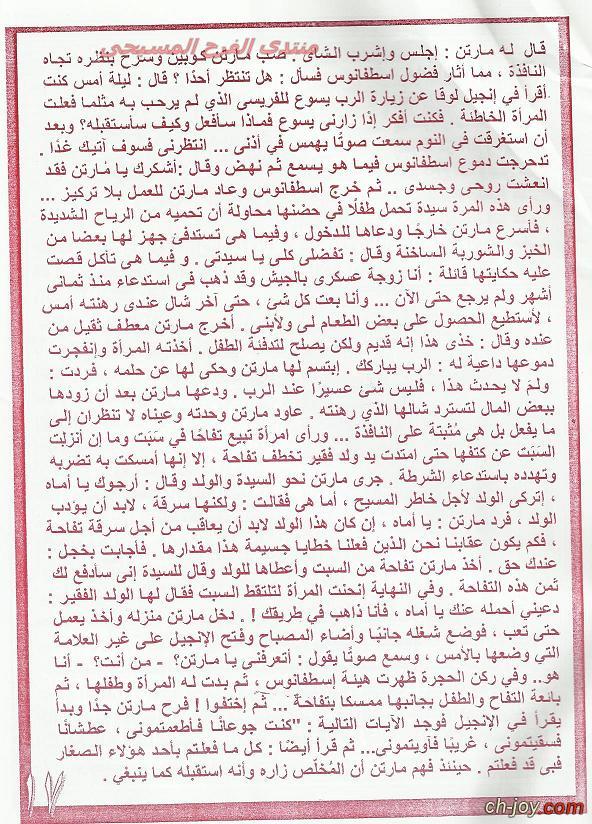 منتدى الفرح المسيحى
قال له مارتن : إجلس وإشرب الشاى . صب مارتن كوبين وسرح بنظره تجاه
النافذة ، مما أثار فضول اسطفانوس فسأل : هل تنتظر أحدًا ؟ قال : ليلة أمس كنت
أقرأ في إنجيل لوقا عن زيارة الرب يسوع للفريسي الذي لم يرحب به مثلما فعلت
المرأة الخاطئة . فكنت أفكر إذا زارنى يسوع فماذا سأفعل وكيف سأستقبله؟ وبعد
أن استغرقت في النوم سمعت صوتًا يهمس في أذنى ... انتظرنى فسوف آتيك غدًا .
تدحرجت دموع اسطفانوس فيما هو يسمع ثم نهض وقال :أشكرك يا مارتن فقد
انعشت روحى وجسدى .. ثم خرج اسطفانوس وعاد مارتن للعمل بلا تركيز ...
ورأى هذه المرة سيدة تحمل طفلًا في حضنها محاولة أن تحميه من الرياح الشديدة
، فأسرع مارتن خارجًا ودعاها للدخول ، وفيما هى تستدفئ جهز لها بعضا من
الخبز والشوربة الساخنة وقال : تفضلى كلى يا سيدتى . و فيما هى تأكل قصت
عليه حكايتها قائلة : أنا زوجة عسكرى بالجيش وقد ذهب في استدعاء منذ ثمانى
أشهر ولم يرجع حتى الآن ... وأنا بعت كل شئ ، حتى آخر شال عندى رهنته أمس
، لأستطيع الحصول على بعض الطعام لى ولأبنى . أخرج مارتن معطف ثقيل من
عنده وقال : خذى هذا إنه قديم ولكن يصلح لتدفئة الطفل . أخذته المرأة وإنفجرت
دموعها داعية له : الرب يباركك . إبتسم لها مارتن وحكى لها عن حلمه ، فردت :
ولمَ لا يحدث هذا ، فليس شئ عسيرًا عند الرب . ودعها مارتن بعد أن زودها
ببعض المال لتسترد شالها الذي رهنته . عاود مارتن وحدته وعيناه لا تنظران إلى
ما يفعل بل هى مُثبتة على النافذة ... ورأى امرأة تبيع تفاحًا في سَبَت وما إن أنزلت
السَبَت عن كتفها حتى امتدت يد ولد فقير تخطف تفاحة ، إلا إنها أمسكت به تضربه
وتهدده باستدعاء الشرطة . جرى مارتن نحو السيدة والولد وقال : أرجوك يا أماه
، إتركى الولد لأجل خاطر المسيح ، أما هى فقالت : ولكنها سرقة ، لابد أن يؤدب
الولد ، فرد مارتن : يا أماه ، إن كان هذا الولد لابد أن يعاقب من أجل سرقة تفاحة
، فكم يكون عقابنا نحن الذين فعلنا خطايا جسيمة هذا مقدارها . فأجابت بخجل :
عندك حق . أخذ مارتن تفاحة من السبت وأعطاها للولد وقال للسيدة إنى سأدفع لك
ثمن هذه التفاحة . وفي النهاية إنحنت المرأة لتلتقط السبت فقال لها الولد الفقير :
دعيني أحمله عنك يا أماه ، فأنا ذاهب في طريقك ! . دخل مارتن منزله وأخذ يعمل
حتى تعب ، فوضع شغله جانبًا وأضاء المصباح وفتح الإنجيل على غير العلامة
التي وضعها بالأمس ، وسمع صوتًا يقول : أتعرفنى يا مارتن؟ - من أنت؟ - أنا
هو.. وفي ركن الحجرة ظهرت هيئة إسطفانوس ، ثم بدت له المرأة وطفلها ، ثم
بائعة التفاح والطفل بجانبها ممسكا بتفاحة ... ثم إختفوا ! فرح مارتن جدًا وبدأ
يقرأ في الإنجيل فوجد الآيات التالية : "كنت جوعانًا فأطعمتمونى ، عطشانًا
فسقيتمونى ، غريبًا فآويتمونى... ثم قرأ أيضًا : كل ما فعلتم بأحد هؤلاء الصغار
فبى قد فعلتم . حينئذ فهم مارتن أن المُخلّص زاره وأنه استقبله كما ينبغي .
١٧
ch-joy.com